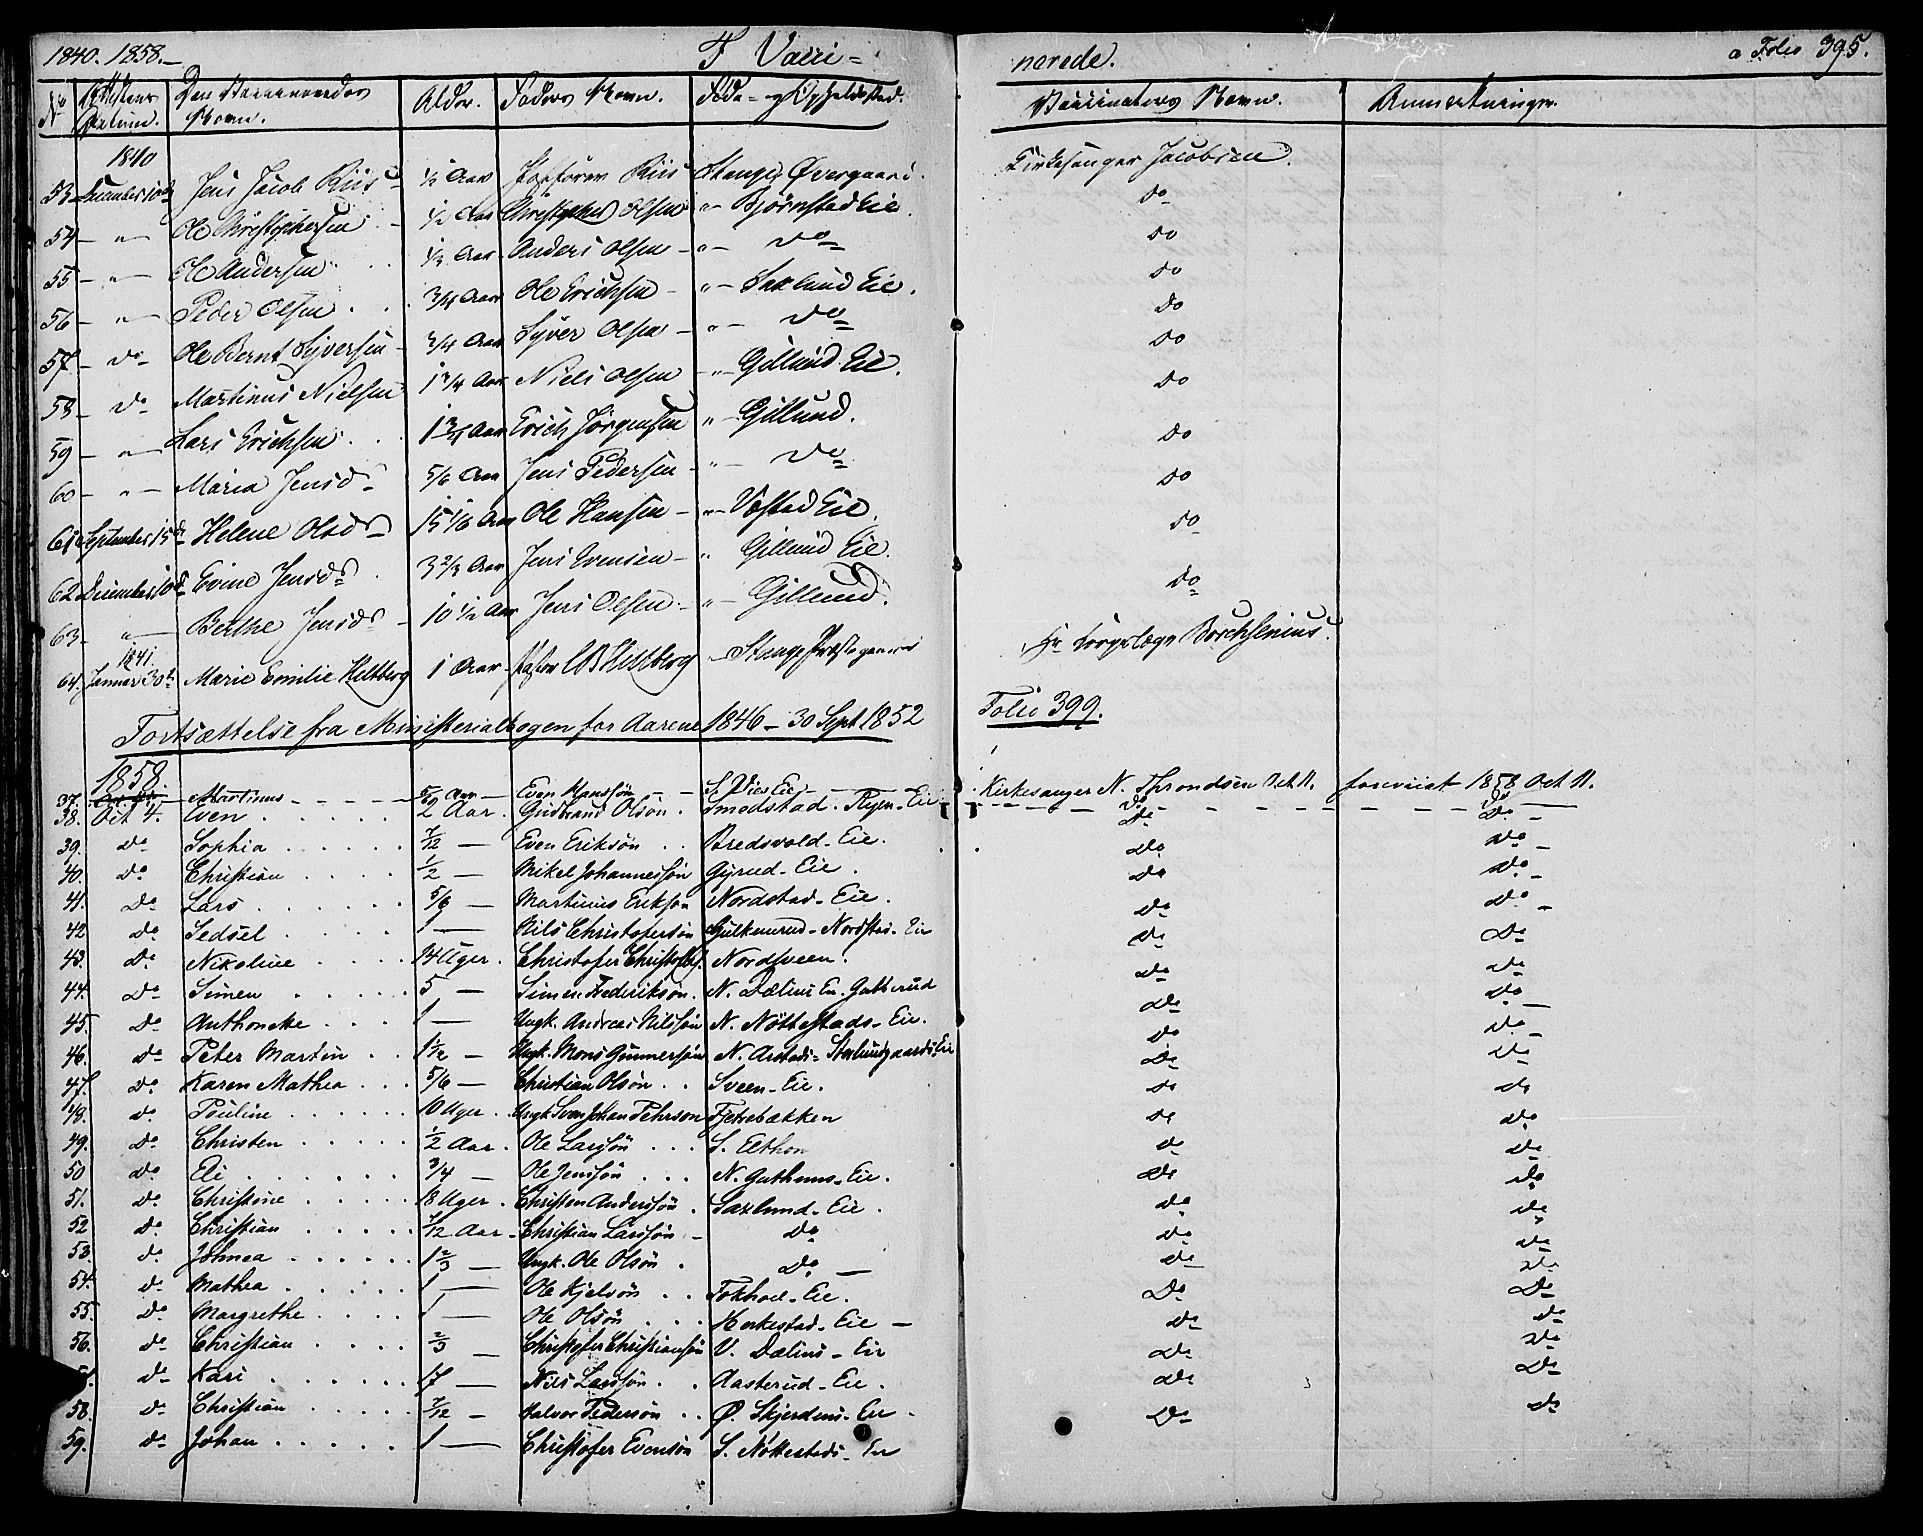 1840. 1858.
F Vacci=
nerede.
a Folio 395.
No Attestens Datum. Den Vaccineredes Navn. Alder. Faders Navn. Føde- og Opholdssted. Vaccinateurs Navn. Anmerkninger.
1840
53 December 10de Jens Jacob Riis ½ Aar Riis Stange Øvergaard. Kirkesanger Jacobsen.
54 — " — Ole Christophersen ½ Aar Christopher Olsen " — Bjørnstad Eie. do
55 — " — Ole Andersen ½ Aar Anders Olsen " — do do
56 — " — Peder Olsen 3/4 Aar Ole Erichsen " — Saxlund Eie. do
57 — do Ole Bernt Syversen 3/4 Aar Syver Olsen " — do do
58 — do Martinus Nielsen 1 3/4 Aar Niels Olsen " — Gillund Eie. do
59 — " — Lars Erichsen 1 3/4 Aar Erich Jørgensen " — Gillund. do
60 — " — Maria Jensd 5/6 Aar Jens Pedersen " — do do
61 September 15de Helene Olsd 15 1/6 Aar Ole Hansen " — Vostad Eie. do
62 December 10de Evine Jensd 3 2/3 Aar Jens Evensen " Gillund Eie. do
63 — " — Berthe Jensd 10 ½ Aar Jens Olsen " — Gillund. do
1841.
64. Januar 30te Marie Emilie Heltberg 1 Aar Pastor Heltberg — Stange Præstegaard Hr Corpslæge Borchsenius.
Fortsættelse fra Ministerialbogen for Aarene 1846 - 30 Sept 1852
Folio 399.
1858
37. Martinus 5/9 Aar Even Hanssøn S. Vies Eie Kirkesanger N. Throndsen Oct 11. foreviist 1858 Oct 11.
38. Oct 4. Even 2 Aar. Gudbrand Olsøn. Smedstad - Ryen - Eie Do Do
39. Do Sophia 7/12 — Even Eriksøn Bredsvold - Eie. Do Do
40. Do Christian ½ — Mikel Johannessøn Gyrud - Eie. Do Do
41. Do Lars 5/6 — Martinus Eriksøn Nordstad - Eie. Do Do
42 Do Sedsel 1 — Nils Christofersøn Gulkerud - Nordstad - Eie Do Do
43. Do Nikoline 14 Uger. Christofer Nordsveen. Do Do
44. Do Simen 5 — Simen Frederiksøn. N. Dælins Eie. Gubberud Do Do
45. Do Anthonette 1 — Ungk. Andreas Nilssøn N. Nøttestads - Eie. Do Do
46. Do Peter Martin 1½ — Ungk. Mons Gunnersøn N. Arstads - Do Do
47. Do Karen Mathea 5/6 — Christian Olsøn Sveen - Eie. Do Do
48. Do Pauline 10 Uger. Ungk. Sven Johan Pehrson Fjetrebakken Do Do
49. Do Christen ½ Aar. Ole Larssøn S. Do Do
50 Do Eli 3/4 — Ole Jenssøn N. Guthuus - Eie. Do Do
51. Do Christine 18 Uger. Christen Anderssøn Saxlund - Eie. Do Do
52 Do Christian 7/12 Aar. Christian Larssøn Do Do Do
53. Do Johnea 1 2/3 — Ungk. Ole Olsøn Do Do Do
54. Do Mathea 1 — Ole Kjelsøn Tokhol - Eie. Do Do
55. Do Margrethe 1 — Ole Olsøn Horkestad - Eie Do Do
56. Do Christian 2/3 — Christofer Christiansøn V. Dælins - Eie Do Do
Do Kari 17 — Nils Larssøn Aasterud - Eie. Do Do
58. Do Christian 7/12 — Halvor Pedersøn Ø. Skjerdens - Eie Do Do
59. Do Johan 1 — Christofer Evensøn S. Nøttestads - Eie